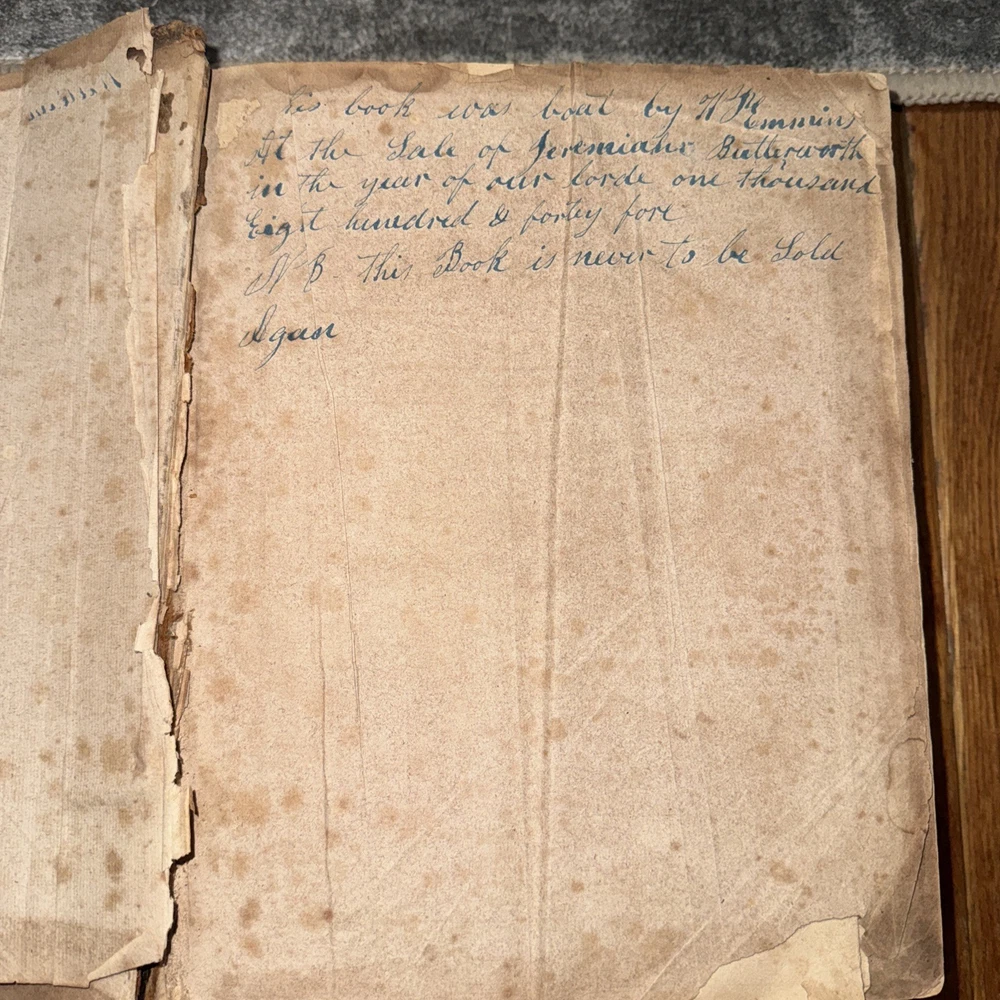 this book was boat by H Hemmins
At the Sale of Jeremiahs Butterworth
in the year of our lorde one thousand
Eight hundred & fortey fore
N B this Book is never to be Sold
Agan